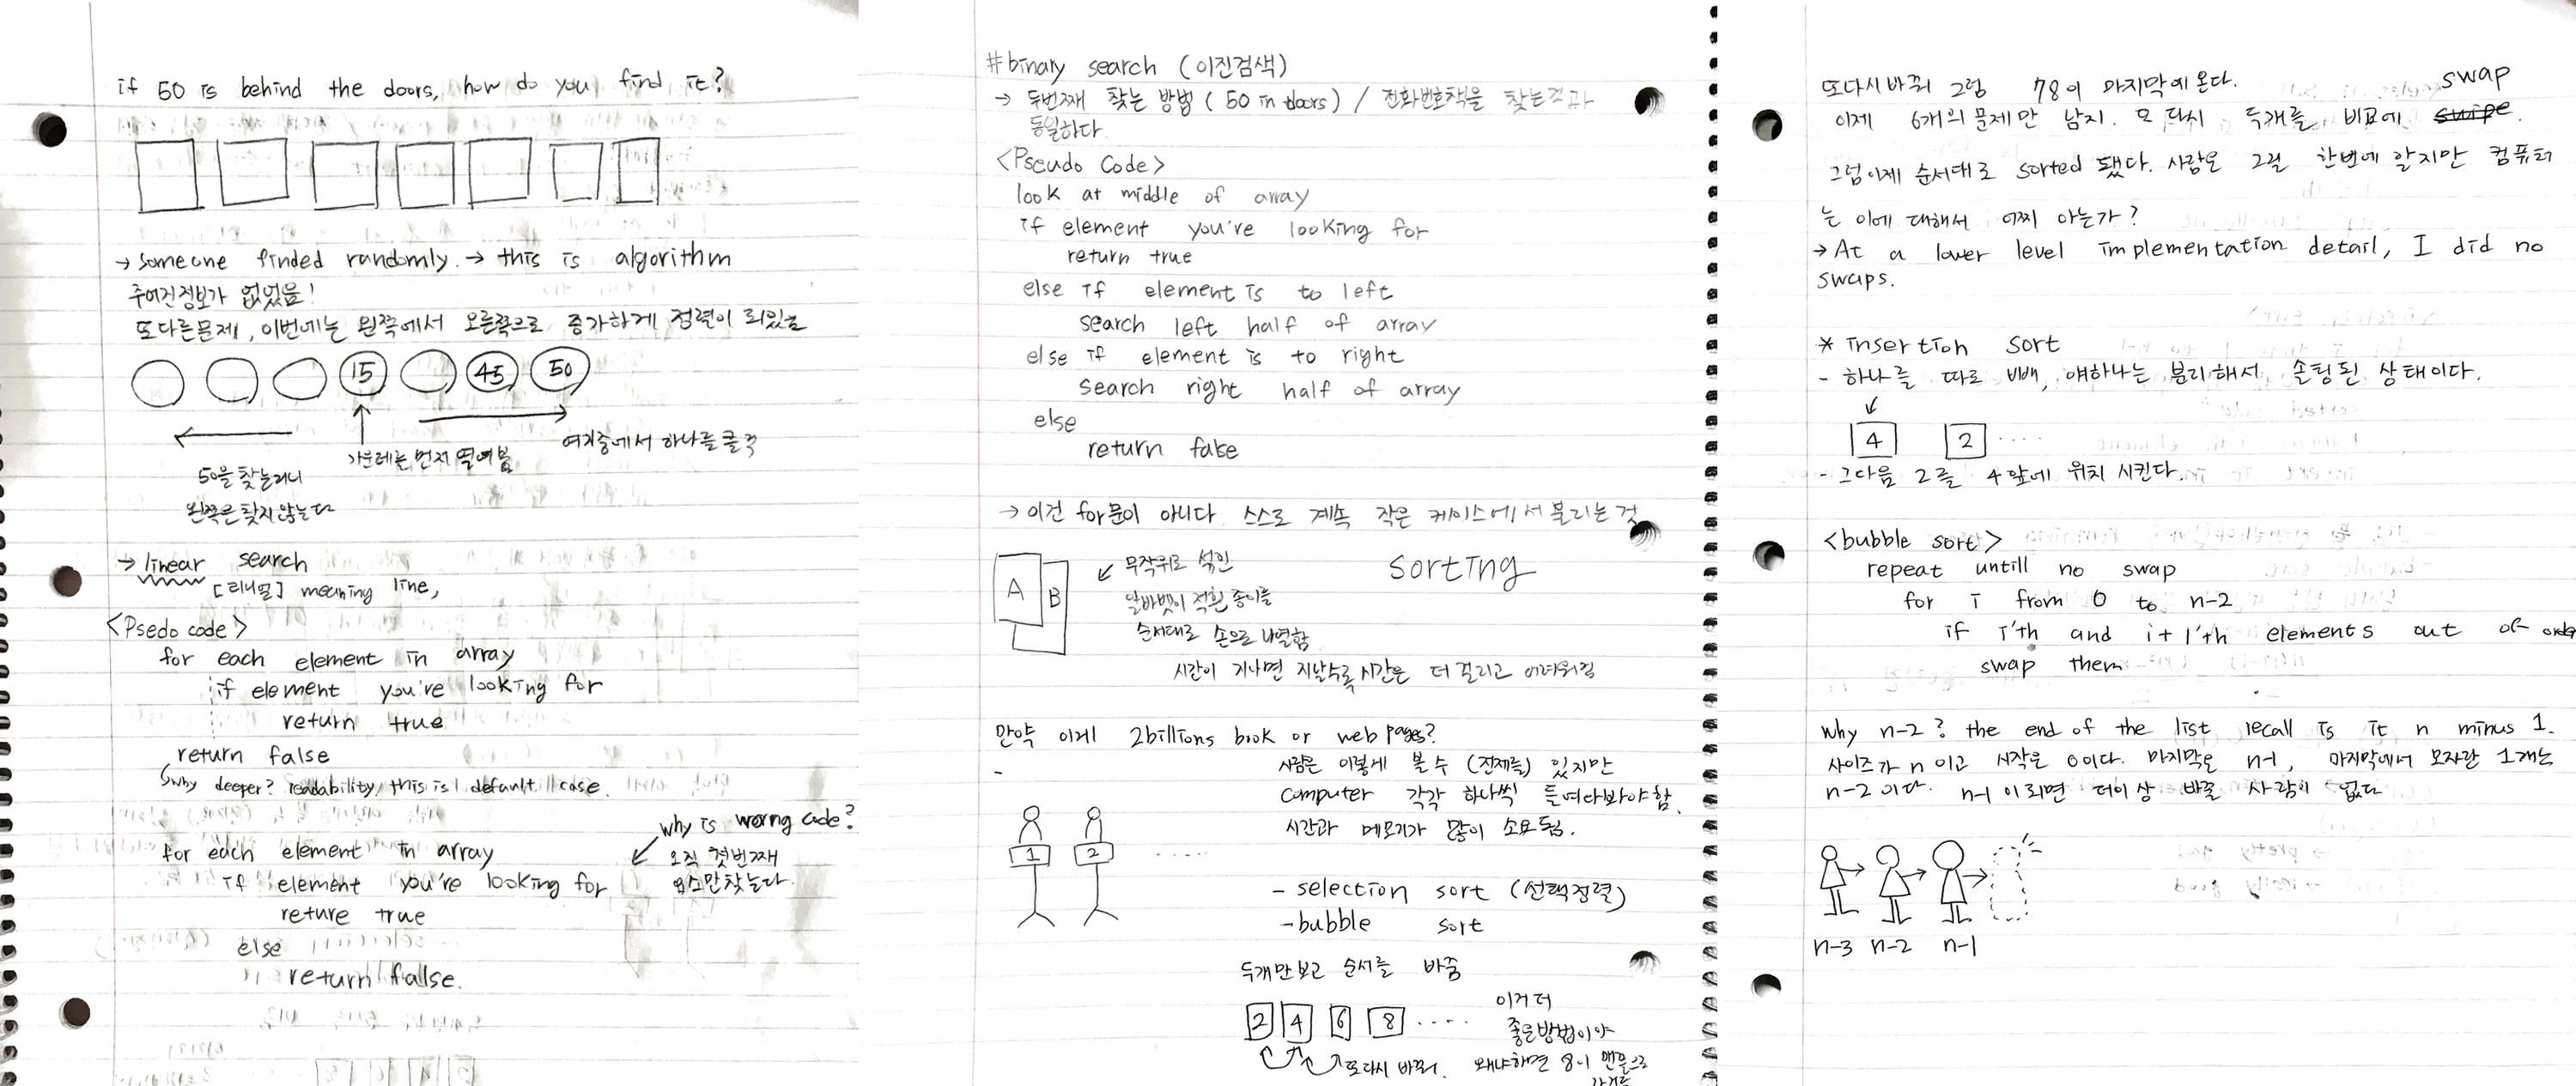 if 50 is behind the doors, how do you find it?
→ someone finded randomly. → this is algorithm
주어진정보가 없었음!
또다른문제, 이번에는 왼쪽에서 오른쪽으로 증가하게 정렬이 되있음
15 45 50
여기중에서 하나를
가운데는 먼저 열여봄
50을 찾는거니
왼쪽은 찾지않는다
→ linear search
[리니얼] meaning line,
<Psedo code>
for each element in array
if element you're looking for
return true
return false
why deeper? readability, this is default case.
why is worng code?
오직 첫번째
요소만찾는다.
for each element in array
if element you're looking for
reture true
else
return false.
#binary search (이진검색)
→ 두번째 찾는 방법 (50 in doors) / 전화번호책을 찾는것과
동일하다
<Pseudo Code>
look at middle of array
if element you're looking for
return true
else if element is to left
search left half of array
else if element is to right
search right half of array
else
return false
→ 이건 for문이 아니다. 스스로 계속 작은 케이스에서 불리는 것
A B
무작위로 섞인
알바벳이 적힌 종이를
순서대로 손으로 나열함
sorting
시간이 지나면 지날수록 시간은 더 걸리고 어려워짐
만약 이게 2billions book or web pages?
-
사람은 이렇게 볼 수 (전체를) 있지만
computer 각각 하나씩 들여다봐야함.
시간과 메모리가 많이 소요됨.
1 2 .....
- selection sort (선택정렬)
- bubble sort
두개만보고 순서를 바꿈
2 4 6 8 ....
또다시 바꿔.
이거 더
좋은방법이야
왜냐하면 8이 맨끝으로
또다시바꿔 그럼 78이 마지막에온다.
swap
이제 6개의문제만 남지. 또 다시 두개를 비교에 swipe.
그럼이제 순서대로 sorted 됐다. 사람은 그걸 한번에 알지만 컴퓨터
는 이에 대해서 어찌 아는가?
→ At a lower level implementation detail, I did no
swaps.
* insertion sort
- 하나를 따로 빼, 얘하나는 분리해서 솔팅된 상태이다.
4 2 ....
- 그다음 2를 4앞에 위치 시킨다.
<bubble sort>
repeat untill no swap
for i from 0 to n-2
if i'th and i+1'th elements out of order
swap them
why n-2? the end of the list recall is it n minus 1.
사이즈가 n이고 시작은 0이다. 마지막은 n-1, 마지막에서 모자란 1개는
n-2이다. n-1이되면 더이상 바꿀 사람이 없다
n-3 n-2 n-1